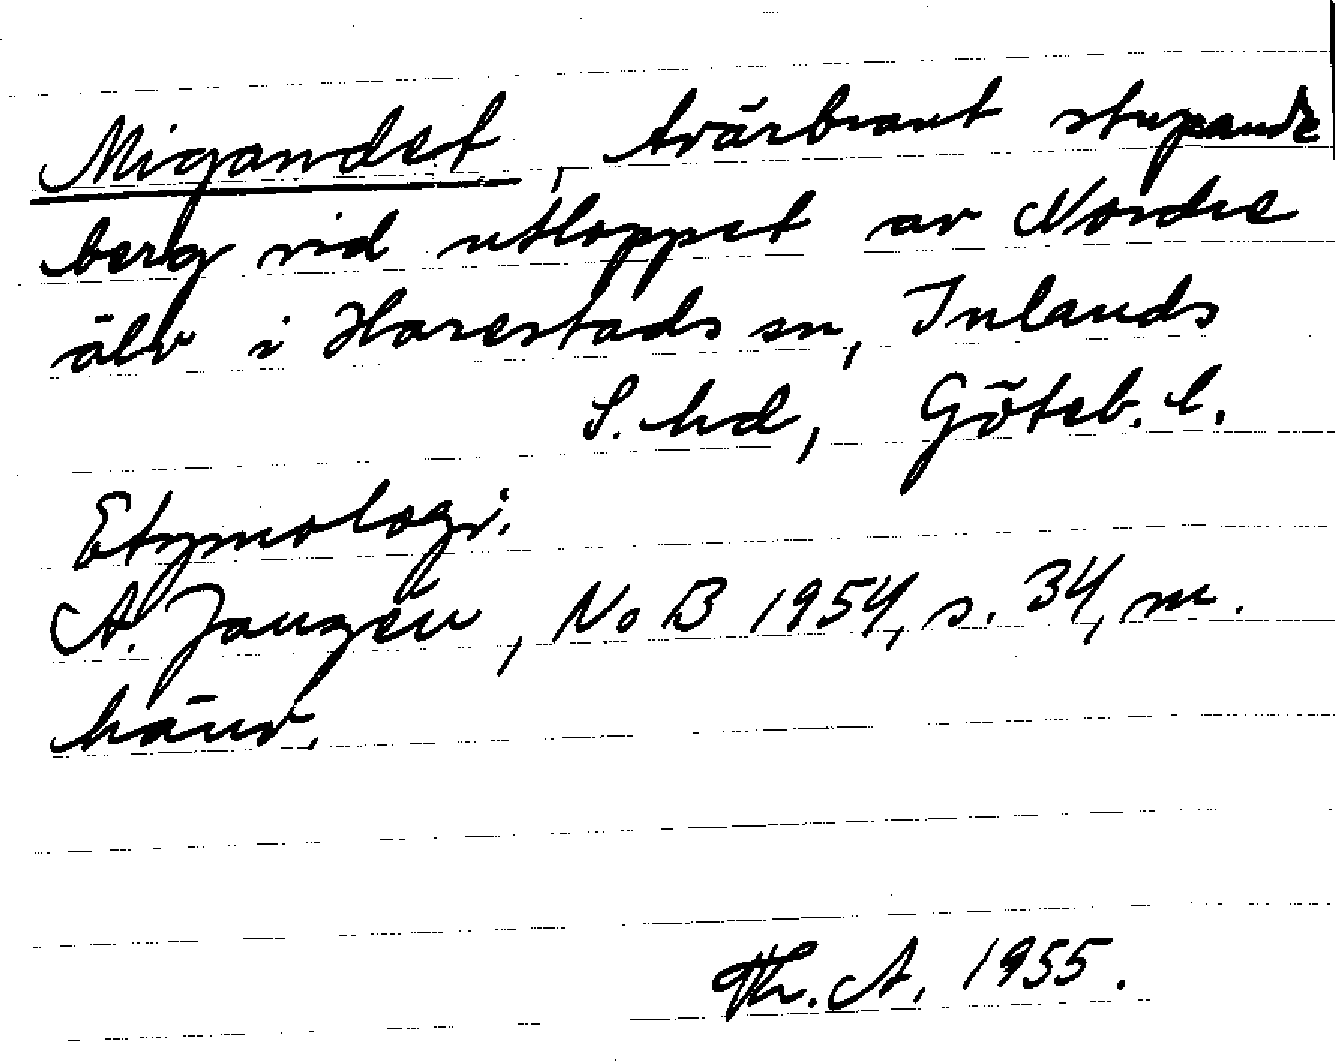 Migandet, tvärbrant stupande
berg vid utloppet av Nordre
älv i Harestads sn, Inlands
S. hd, Göteb. l.
Etymologi.
A. Janzén, NoB 1954, s. 34, m.
hänv.
Th. A. 1955.